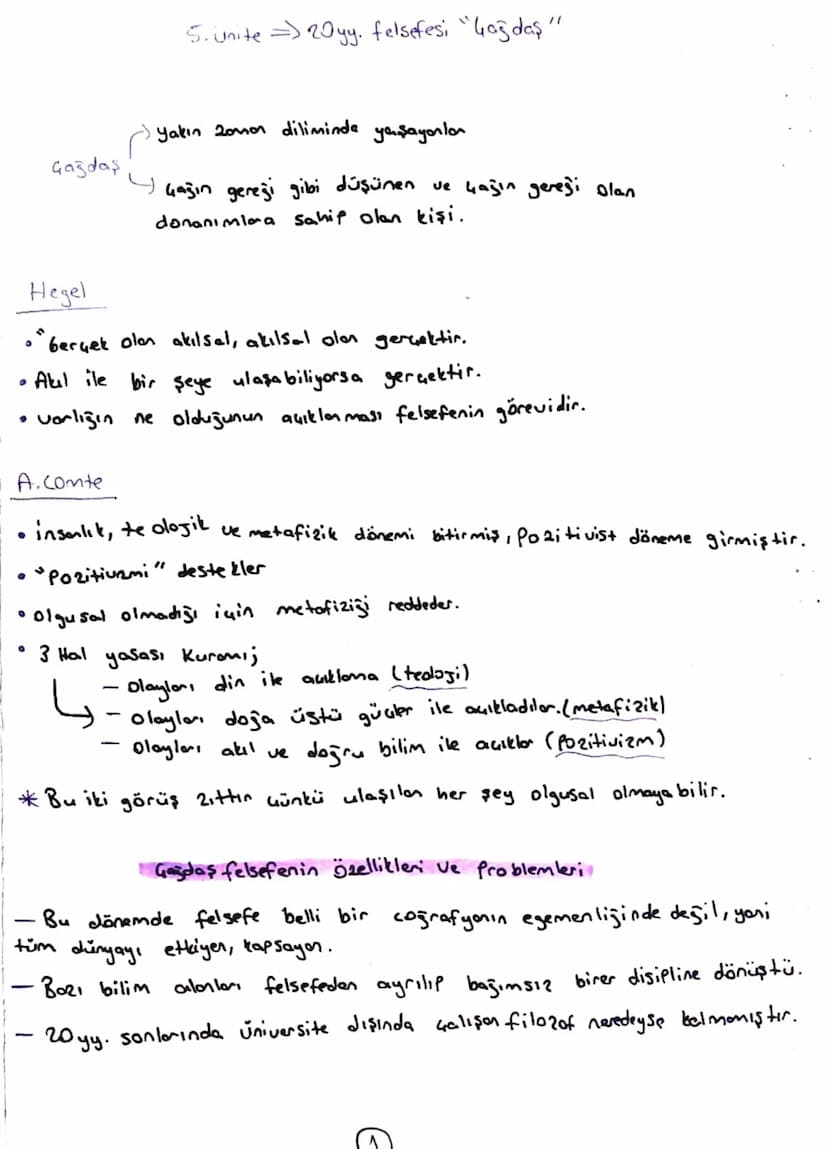 5. ünite => 20yy. felsefesi "Çağdaş"
Çağdaş
yakın zaman diliminde yaşayanlar
Çağın gereği gibi düşünen ve çağın gereği olan
donanımlara sahip olan kişi.
Hegel
• "Gerçek olan akılsal, akılsal olan gerçektir.
• Akıl ile bir şeye ulaşabiliyorsa gerçektir.
• varlığın ne olduğunun açıklanması felsefenin görevidir.
A. Comte
• insanlık, teolojik ve metafizik dönemi bitirmiş, Pozitivist döneme girmiştir.
• "Pozitivizmi" destekler
• olgusal olmadığı için metafiziği reddeder.
• 3 Hal yasası Kuramı;
– Olayları din ile açıklama (teoloji)
– olayları doğa üstü güçler ile açıkladılar. (metafizik)
– olayları akıl ve doğru bilim ile açıklar (Pozitivizm)
* Bu iki görüş zıttın çünkü ulaşılan her şey olgusal olmayabilir.
Çağdaş felsefenin özellikleri ve Problemleri
– Bu dönemde felsefe belli bir coğrafyanın egemenliğinde değil, yani
tüm dünyayı etkiyen, kapsayan.
– Bazı bilim alanları felsefeden ayrılıp bağımsız birer disipline dönüştü.
– 20yy. sonlarında üniversite dışında çalışan filozof neredeyse kalmamıştır.
1